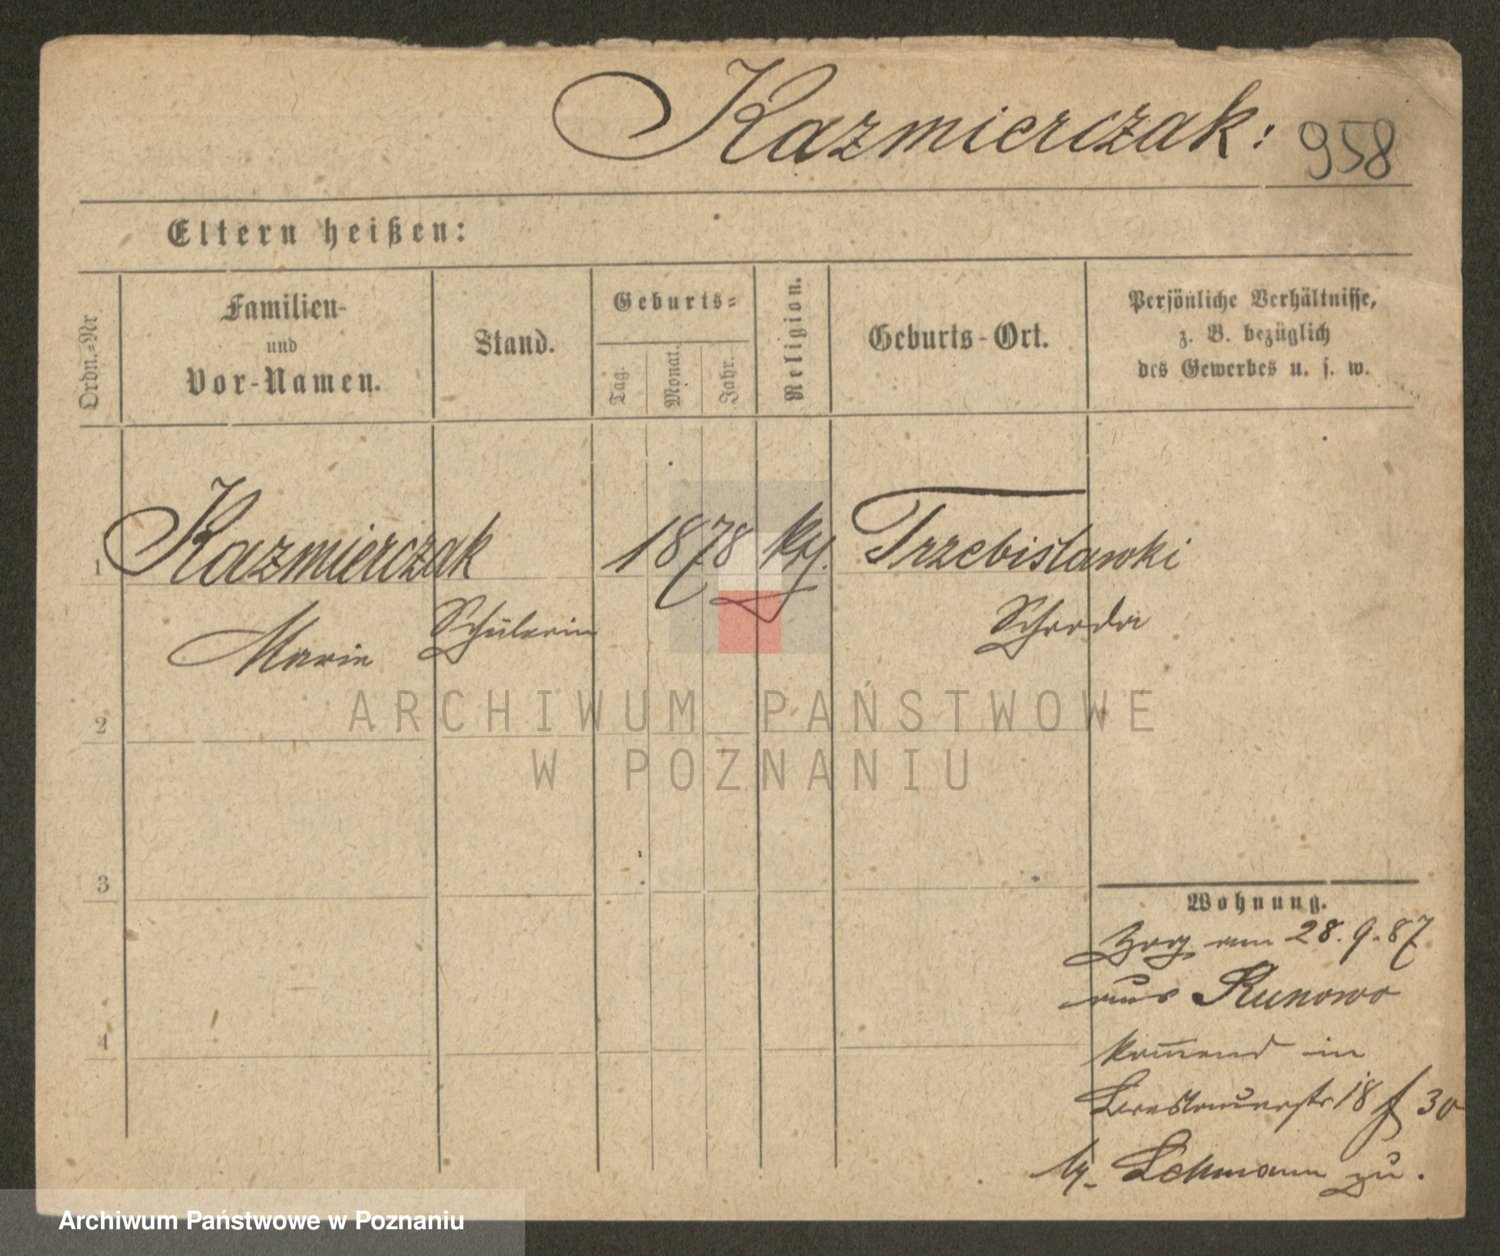 Kazmierczak: 958
Eltern heißen:
Ordn.-Nr
Familien-
und
Vor-Namen.
Stand.
Geburts-
Tag.
Monat.
Jahr.
Religion.
Geburts-Ort.
Persönliche Verhältnisse,
z. B. bezüglich
des Gewerbes u. s. w.
1 Kazmierczak 1878 Trzebislawki
Marie Schülerin Schroda
ARCHIWUM PAŃSTWOWE
W POZNANIU
2
3
4
Wohnung.
Zog am 28. 9. 87
aus Runowo
kom̅end in
18 30
Lehmann zu.
Archiwum Państwowe w Poznaniu